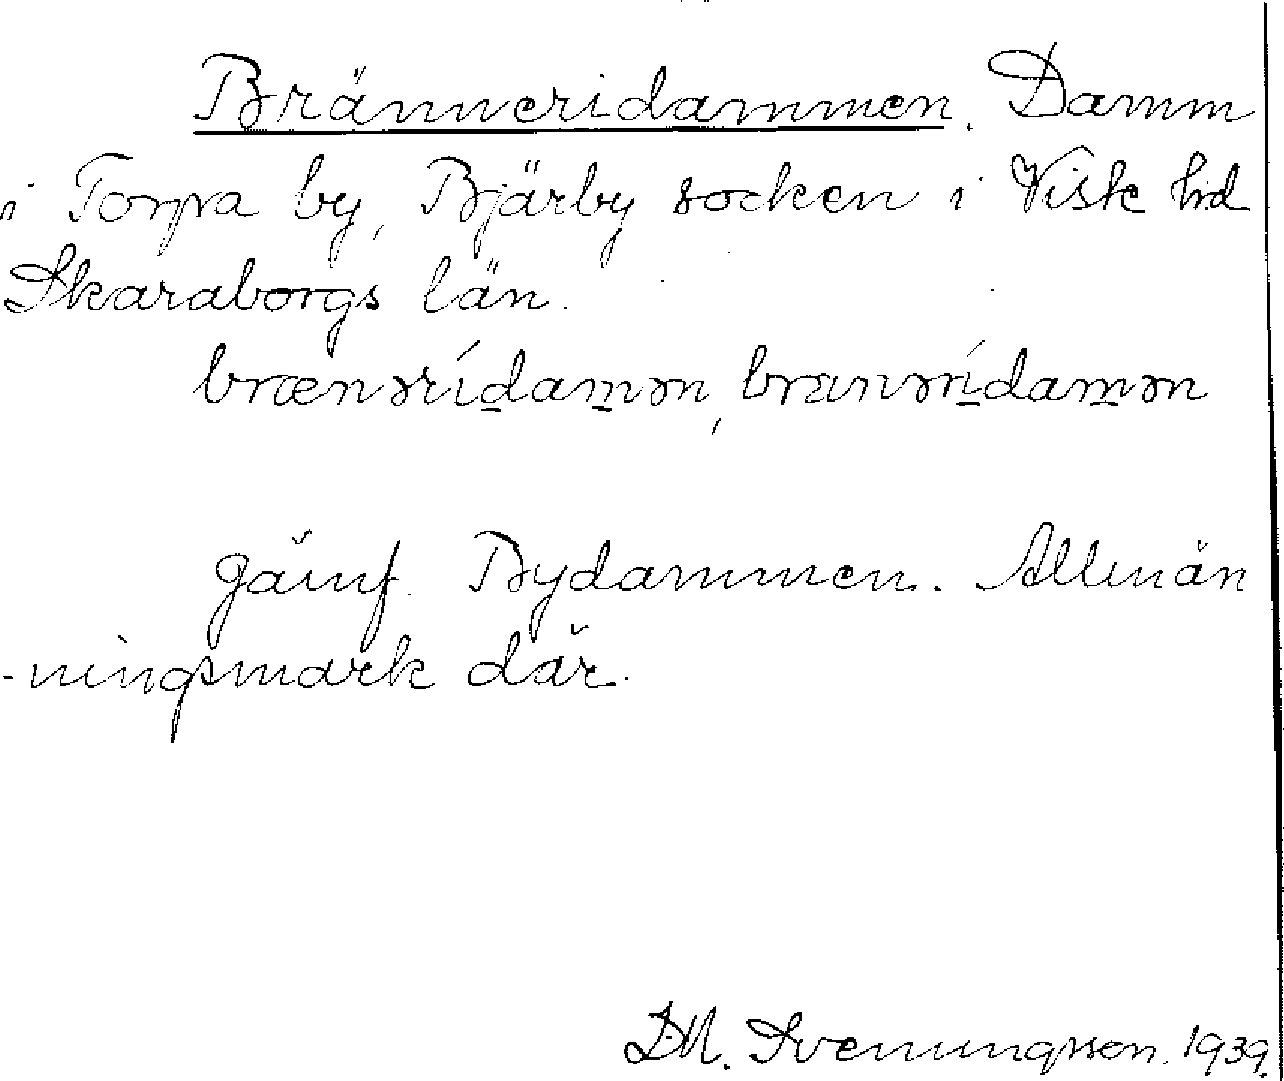 Bränneridammen. Damm
i Torpa by, Bjärby socken i Viste hd
Skaraborgs län.
brænərídamən, branərídamən
Jämf. Bydammen. Allmän
-ningsmark där.
D.M. Svenungsson. 1939.